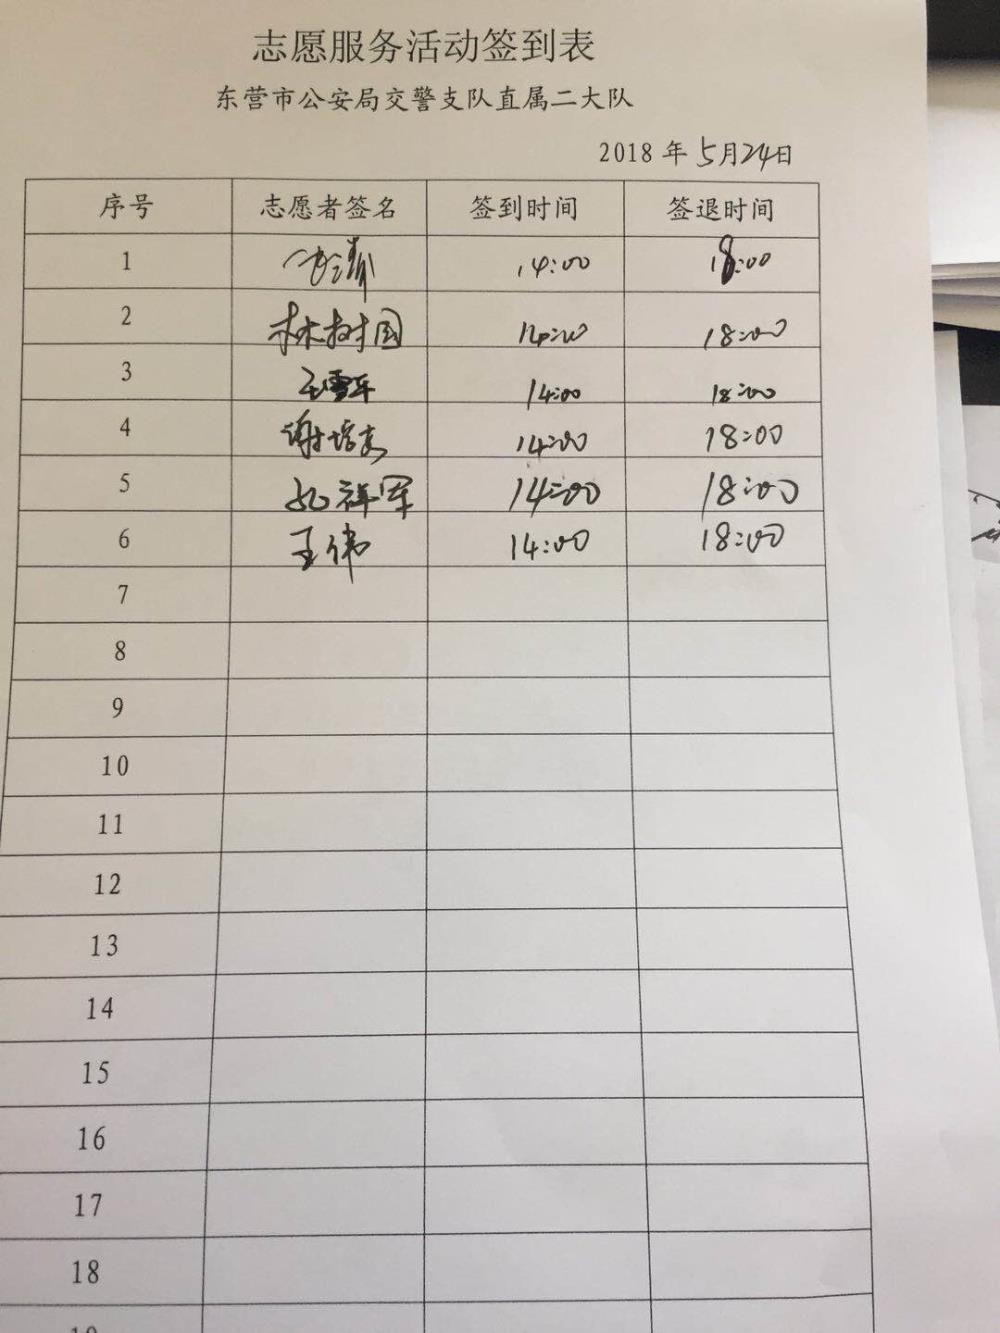 志愿服务活动签到表
东营市公安局交警支队直属二大队
2018 年 5月24日
序号 志愿者签名 签到时间 签退时间
1 14:00 18:00
2 林树国 14:00 18:00
3 14:00 18:00
4 14:00 18:00
5 祥军 14:00 18:00
6 王伟 14:00 18:00
7
8
9
10
11
12
13
14
15
16
17
18